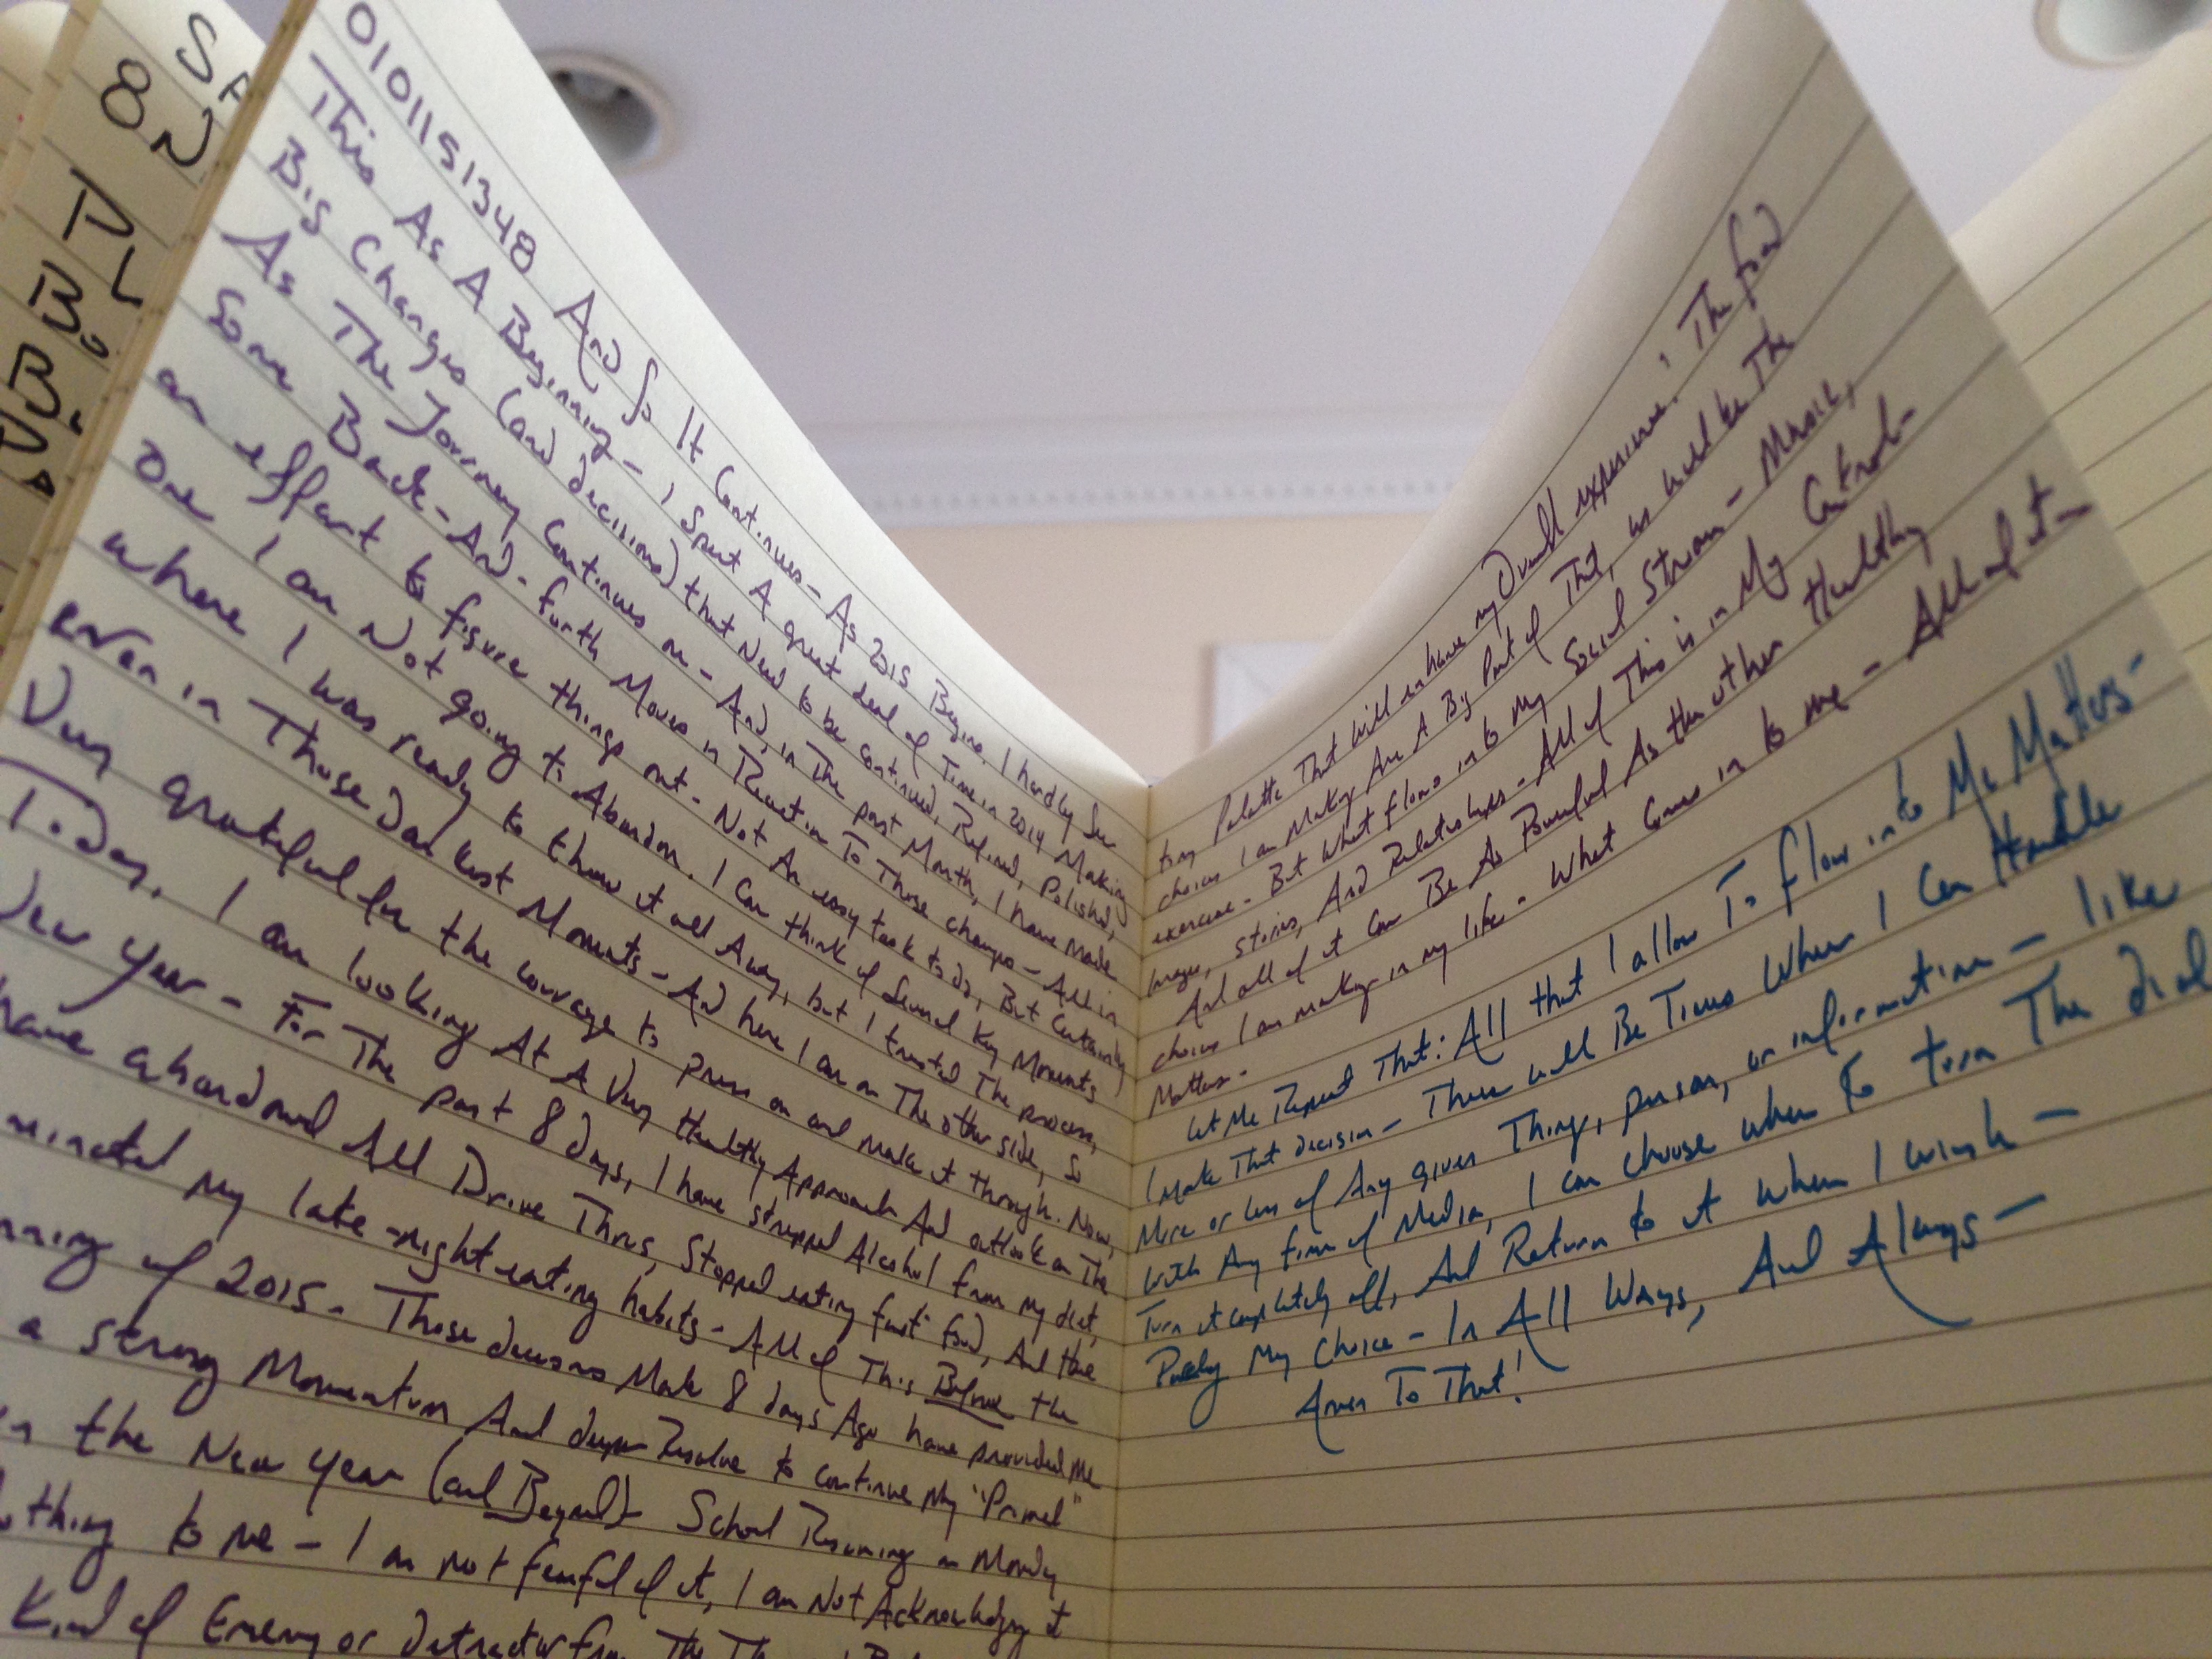 SA
8 N
PL
B.
B.
0101151348 And So It Continues - As 2015 Begins, I hardly See
This As A Beginning - I Spent A great deal of Time in 2014 Making
Big Changes (and decisions) that Need to be continued, Refined, Polished,
As The Journey Continues on - And, in The past Month, I have Made
Some Back - And - Forth Moves in Reaction To Those changes - All in
an effort to figure things out - Not An easy task to do, But Certainly
one I am Not going to Abandon. I Can think of Several Key Moments
where I was ready to throw it all Away, but I trusted The process,
even in Those Darkest Moments - And here I am on The other side, So
Very grateful for the courage to press on and make it through. Now,
Today, I am looking At A Very Healthy Approach And outlook on The
New Year - For The past 8 days, I have stripped Alcohol from my diet,
have abandoned All Drive Thrus, Stopped eating fast food, And have
minated My late-night-eating habits - All of This Before the
nning of 2015. Those decisions Made 8 days Ago have provided Me
a strong Momentum And deeper Resolve to continue My "Primal"
in the New Year (and Beyond) - School Resuming on Monday
othing to me - I am not fearful of it, I am Not Acknowledging it
Kind of Enemy or detractor from The
Palette That Will enhance my Overall experience; The food
choices I am Making Are A Big Part of That, as will be The
exercise - But What flows in to My Social Stream - Music,
Images, Stories, And Relationships - All of This is in My Control -
And all of it Can Be As Powerful As the other Healthy
choices I am making in my life. What Comes in to me - All of it -
Matters.
Let Me Repeat That: All that I allow To Flow into Me Matters -
I Make That decision - There will Be Times When I Can Handle
More or less of Any given Thing, person, or information - like
With Any form of Media, I can choose when to turn The dial
Turn it completely off, And Return to it when I wish -
Purely My Choice - In All Ways, And Always -
Amen To That!